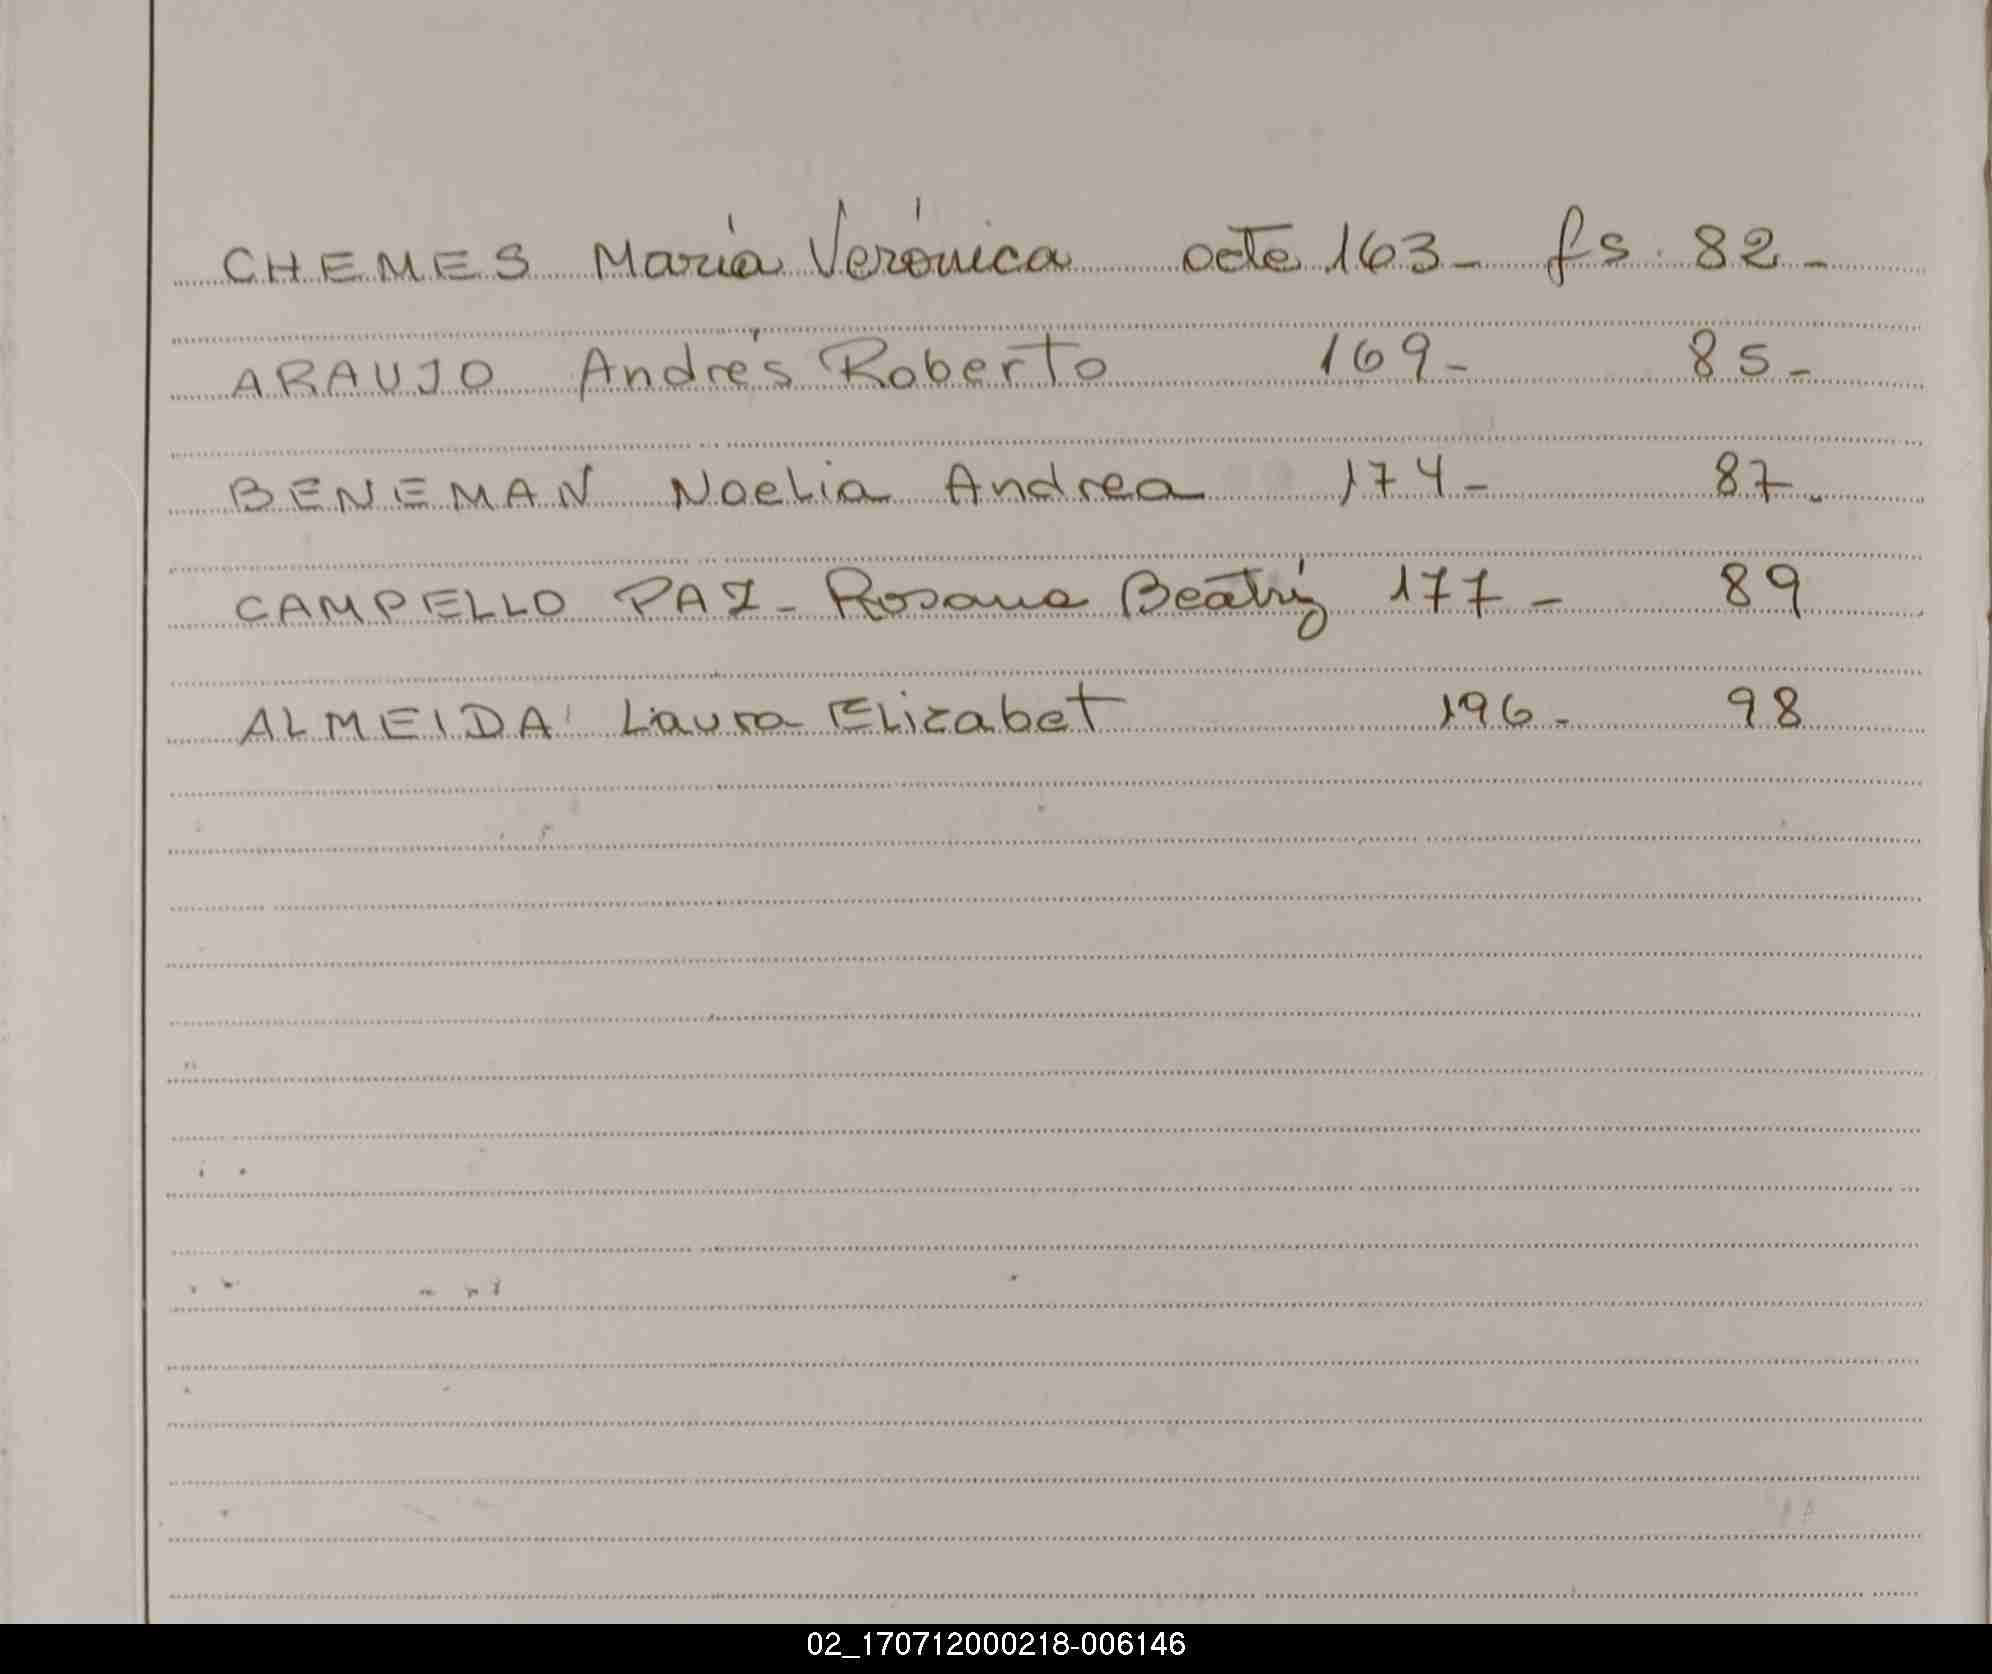 CHEMES María Verónica acte 163- fs. 82-
ARAUJO Andrés Roberto 169- 85-
BENEMAN Noelia Andrea 174- 87.
CAMPELLO PAZ- Rosana Beatriz 177- 89
ALMEIDA Laura Elizabet 196- 98
02_170712000218-006146